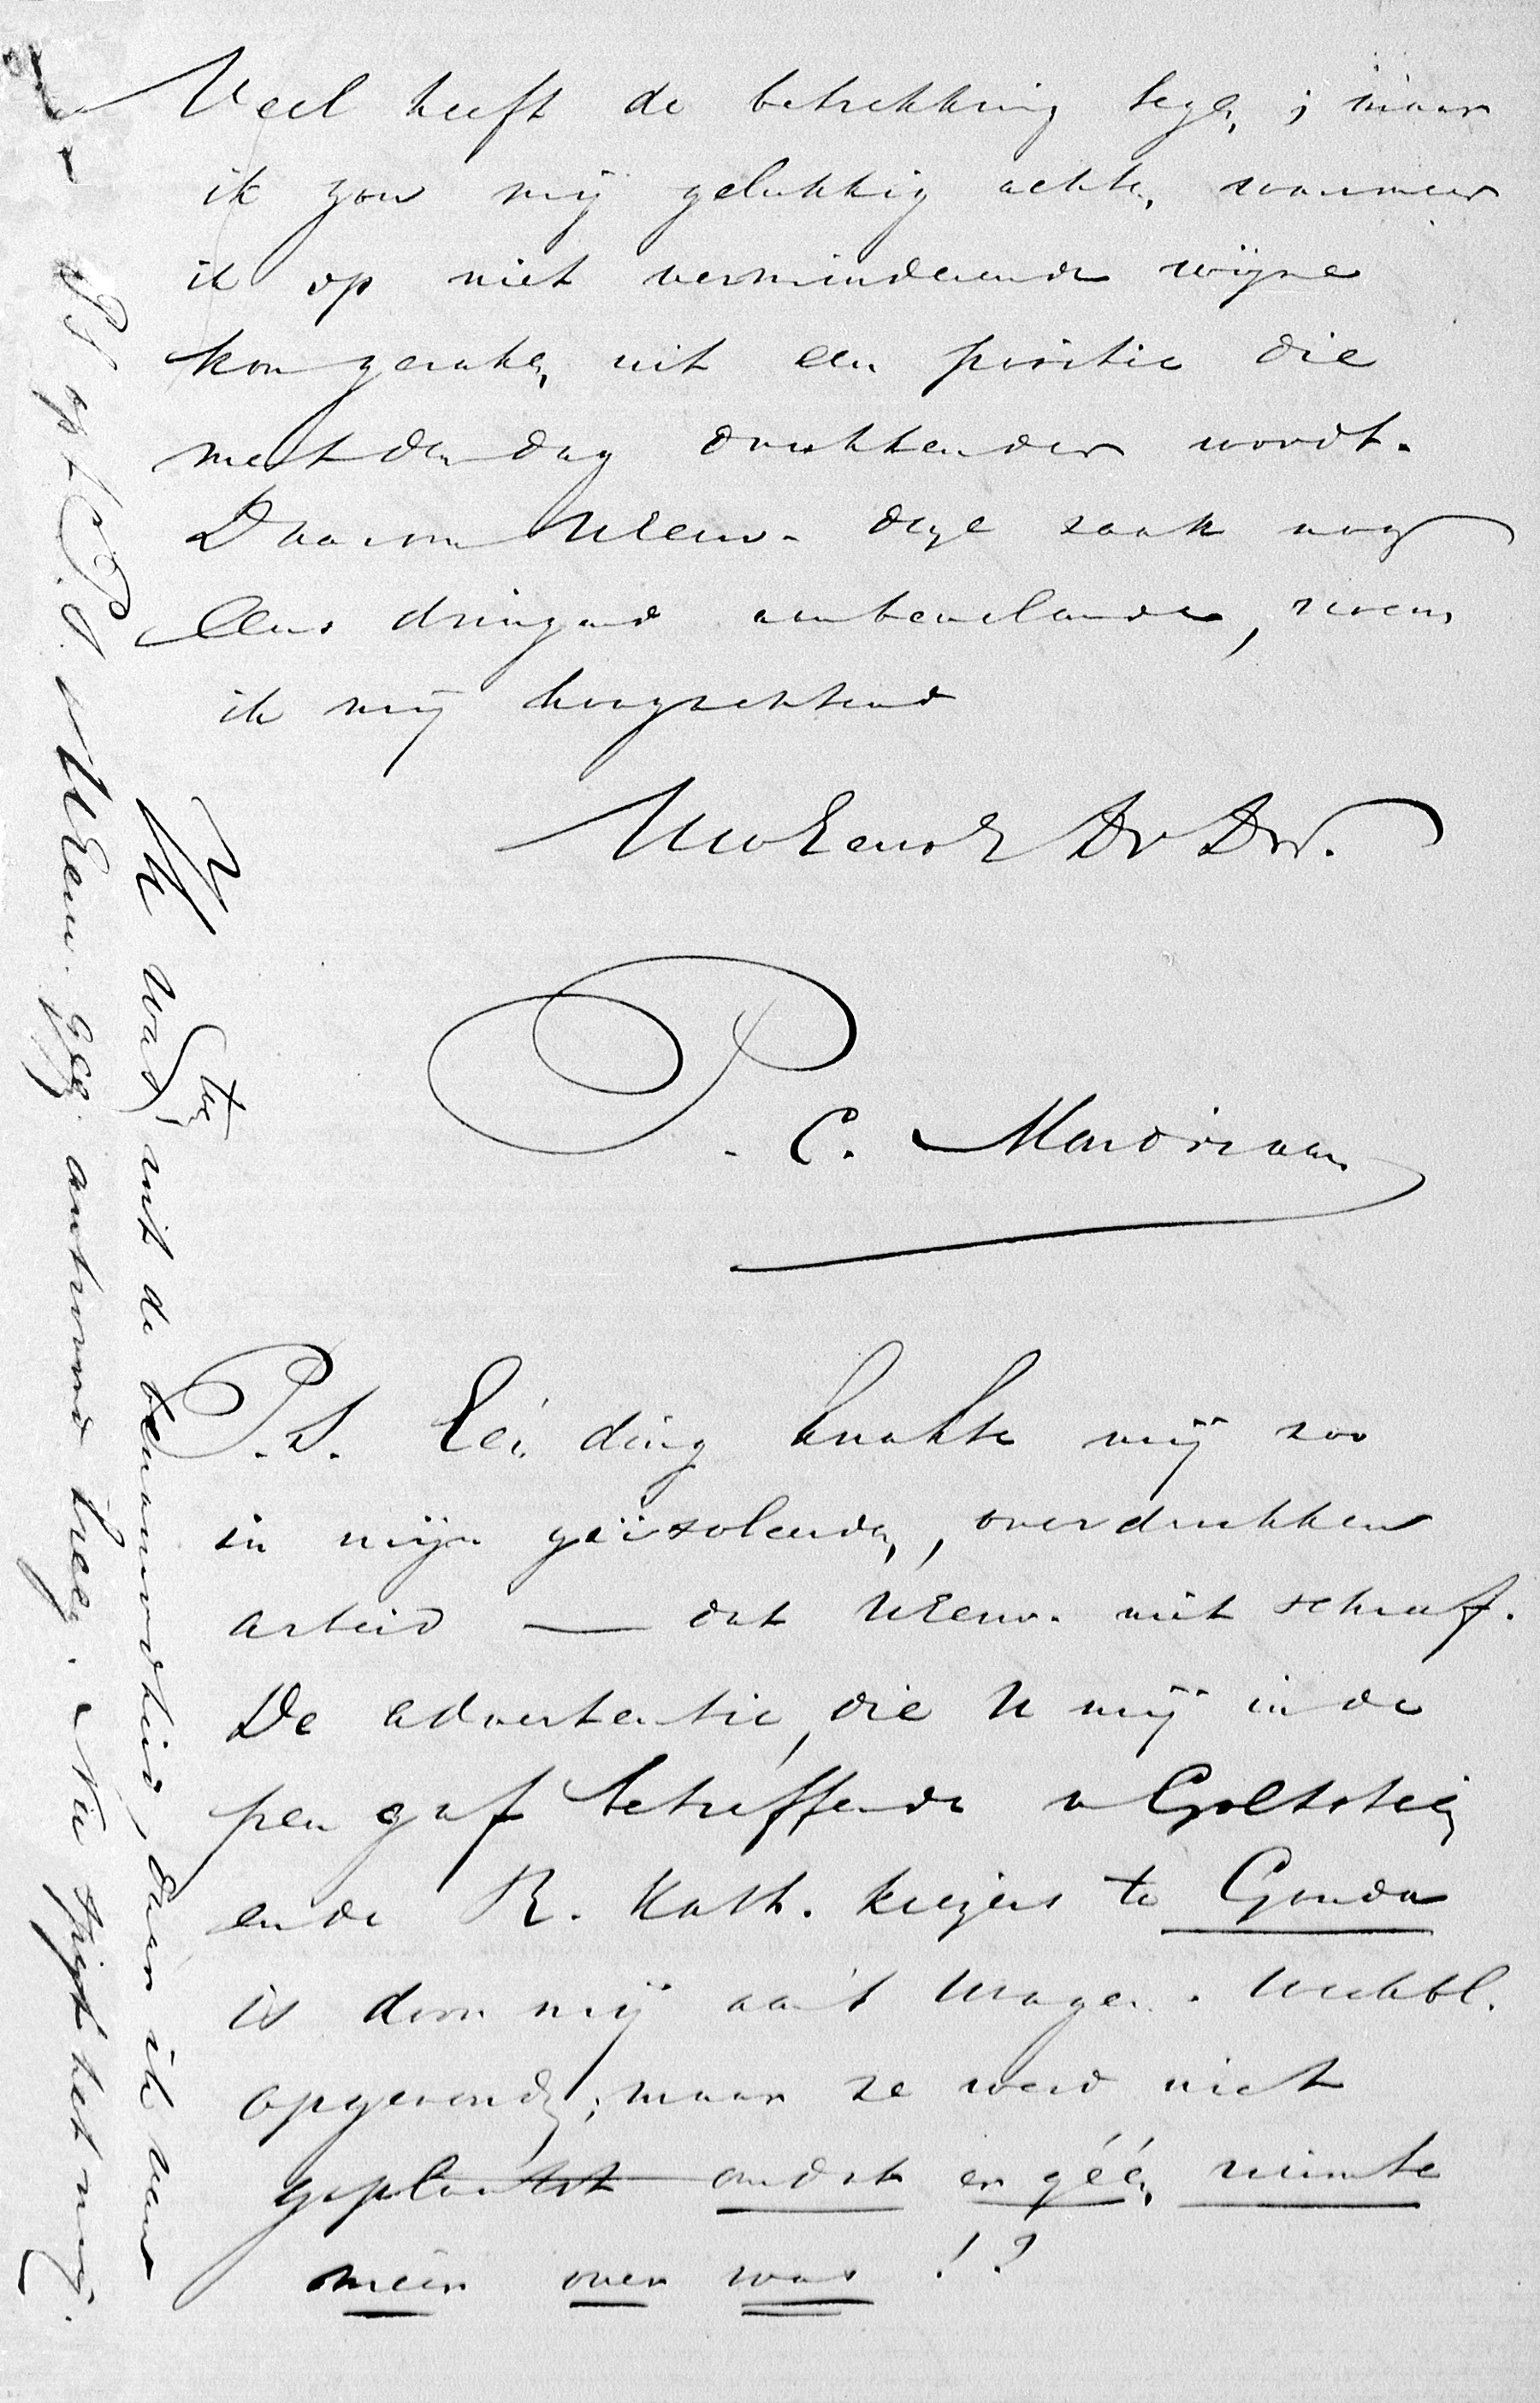 Veel heeft de betrekking tegen; maar
ik zou mij gelukkig achten, wanneer
ik op niet verminderende wijze
kon geraken uit een positie die
met den dag drukkender wordt.
Daarom UEew. deze zaak nog
eens dringend aanbevelende, noem
ik mij hoogachtend
UwEew DvDr.
P. C. Mondriaan
P.S. Eén ding knakte mij zoo
in mijn geïsoleerden, overdrukken
arbeid — dat UEew. niet schreef.
De advertentie, die U mij in de
pen gaf betreffende v Goltstein
en de R. Kath. kiezers te Gouda
is door mij aan 't Wagen. Weekbl.
opgezonden; maar ze werd niet
geplaatst omdat er géén ruimte
meer over was !?
Ik was, uit de tegenwoordigheid, daar ik van
UEew. geen antwoord kreeg. Nu spijt het mij.
PS op P.S.